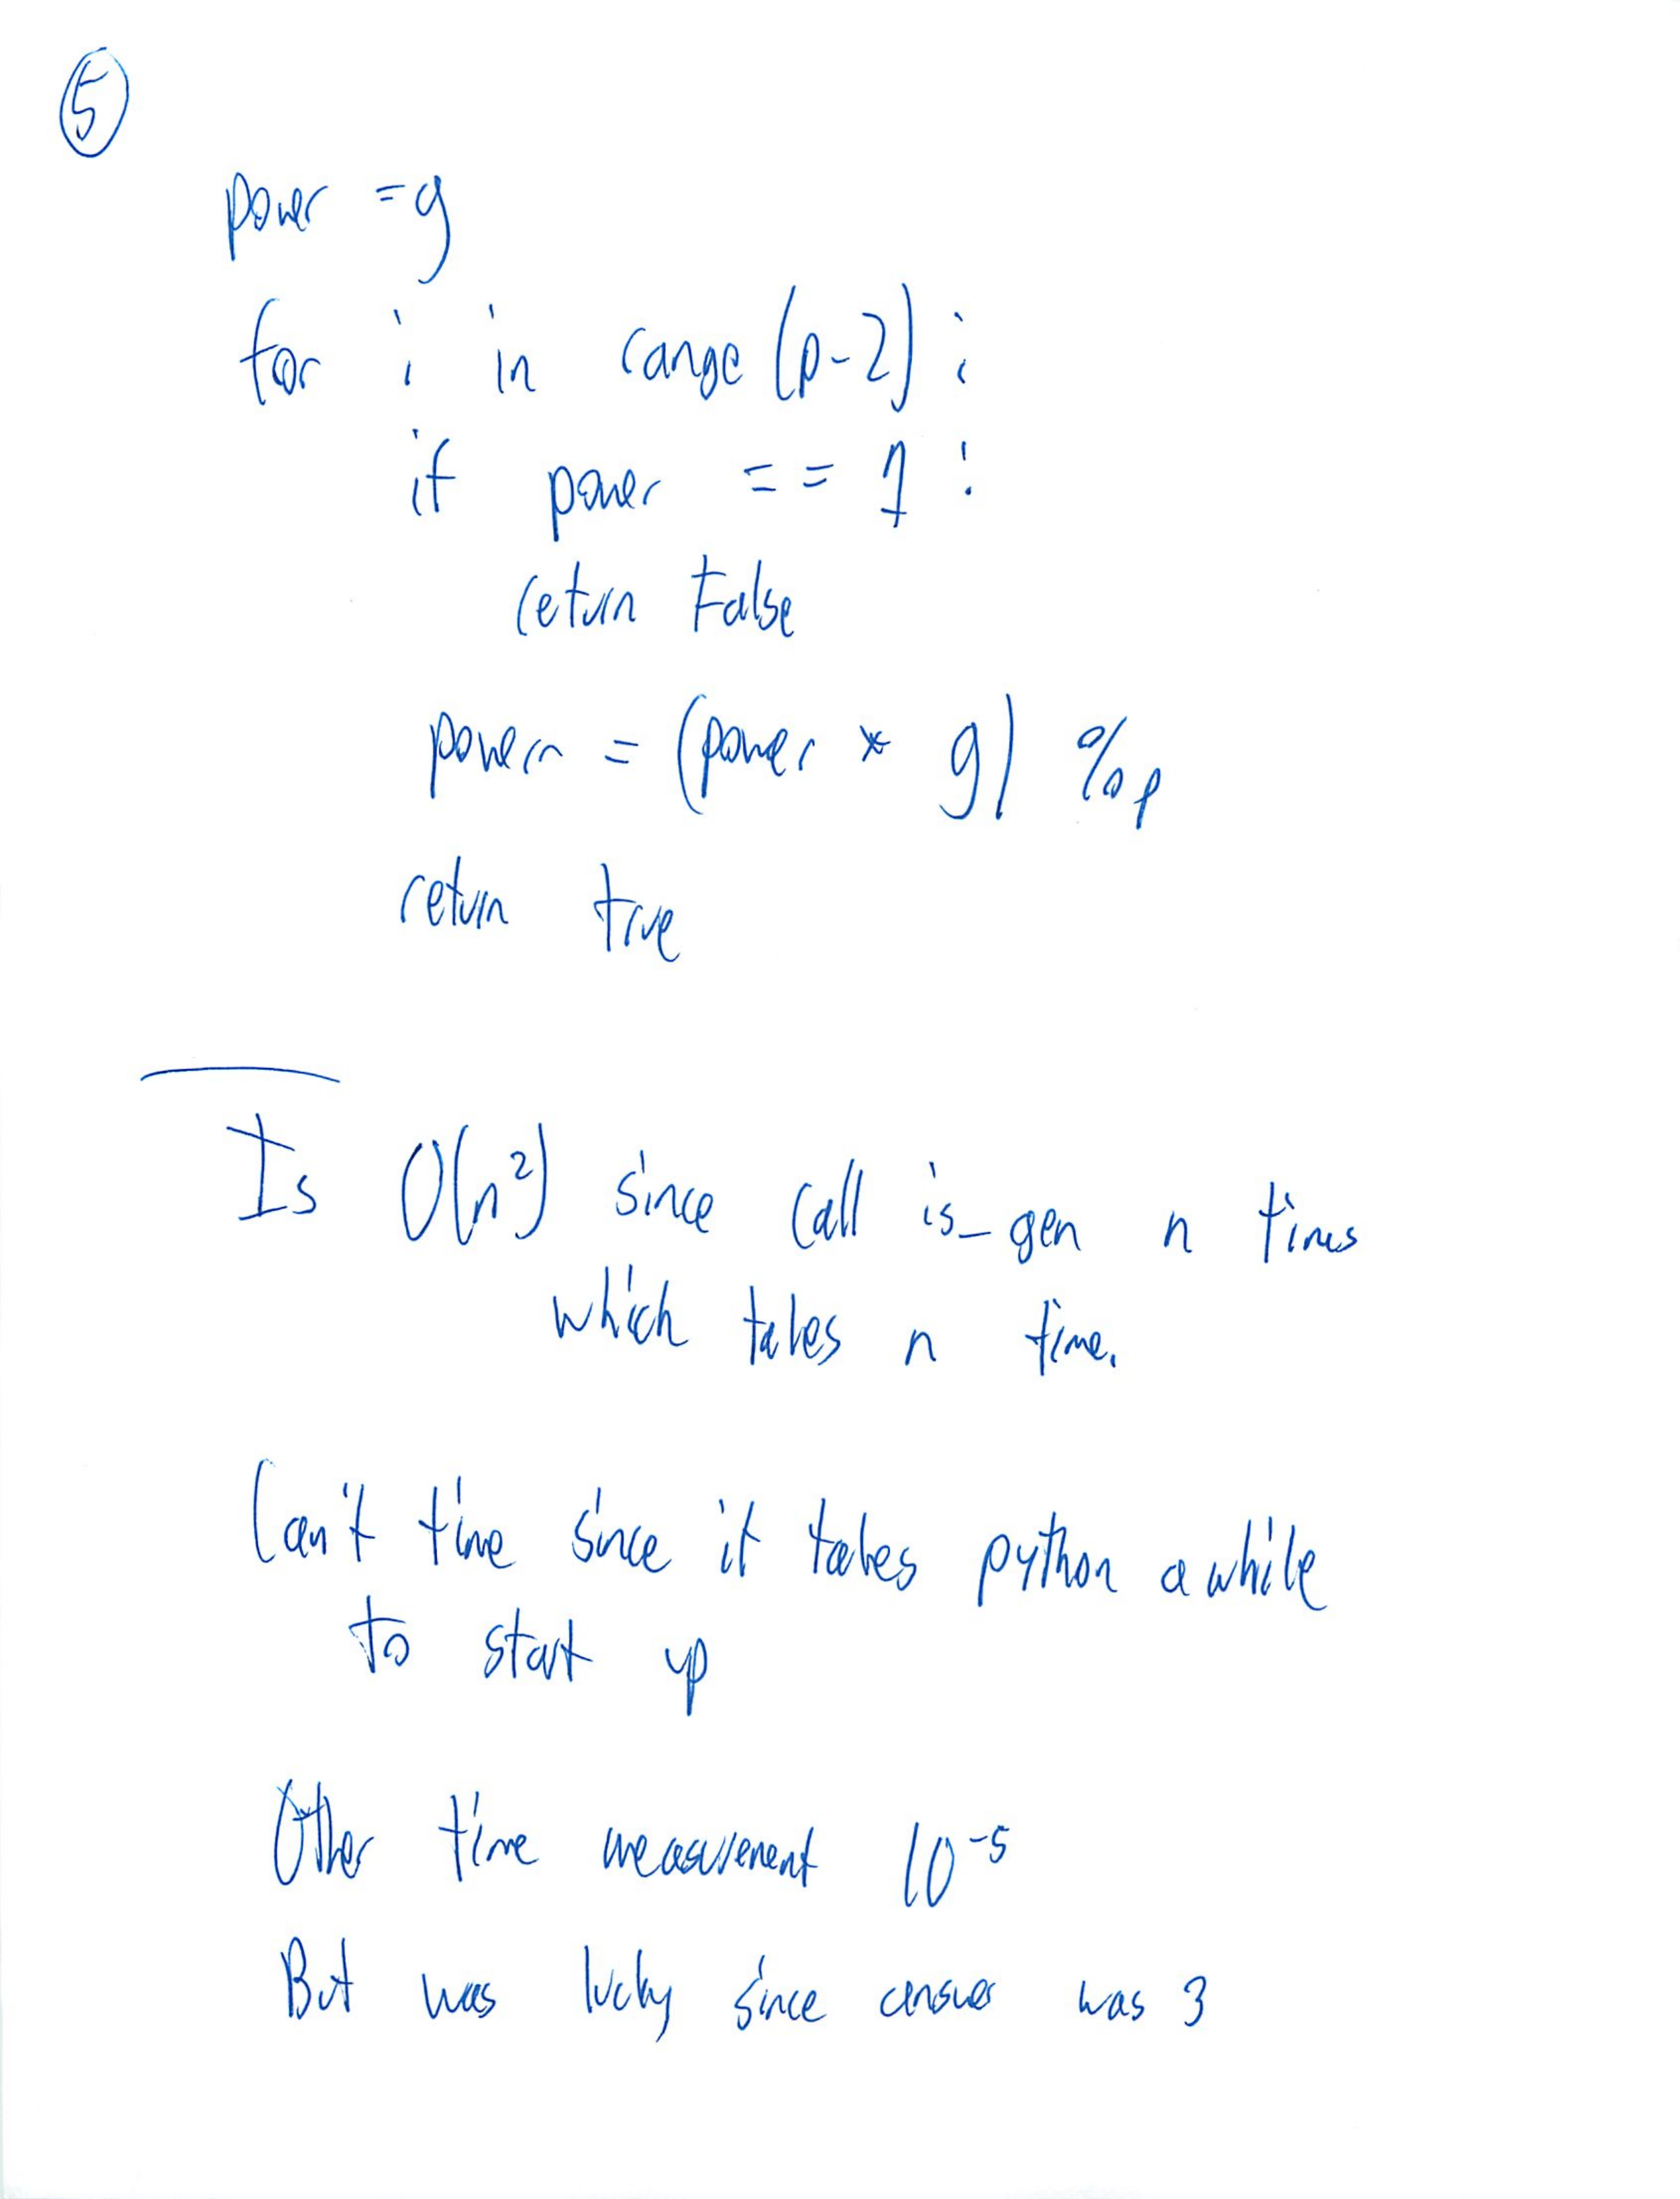 5
power = g
for i in range (p-2) :
if power == 1 :
return False
power = (power * g) % p
return true
Is O(n²) since call is_gen n times
which takes n time.
Can't time since it takes python awhile
to start up
Other time measurement 10⁻⁵
But was lucky since answer was 3